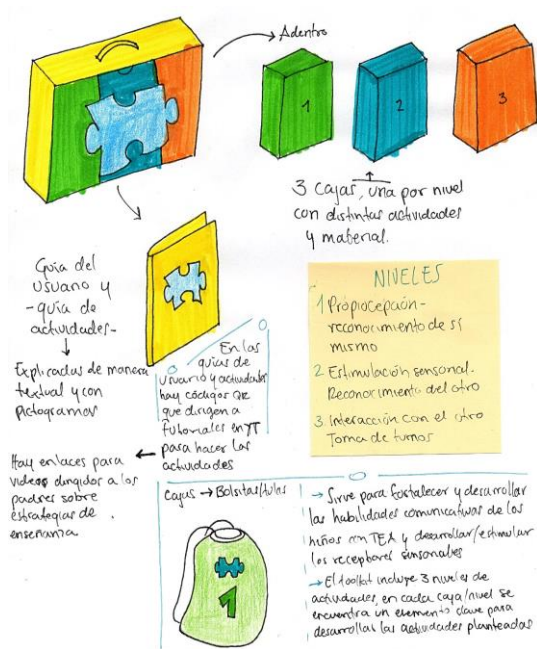 Adentro
1
2
3
3 cajas, una por nivel
con distintas actividades
y material.
Guía del
usuario y
-guía de
actividades-
Explicadas de manera
textual y con
pictogramas
En las
guías de
usuario y actividades
hay códigos QR
que dirigen a
tutoriales en YT
para hacer las
actividades
Hay enlaces para
videos dirigidos a los
padres sobre
estrategias de
enseñanza.
NIVELES
1 Propiocepción-
reconocimiento de sí
mismo
2 Estimulación sensorial-
Reconocimiento del otro
3. Interacción con el otro
Toma de turnos
Cajas → Bolsitas/tulas
1
→ Sirve para fortalecer y desarrollar
las habilidades comunicativas de los
niños con TEA y desarrollar/estimular
los receptores sensoriales
→ El toolkit incluye 3 niveles de
actividades, en cada caja/nivel se
encuentra un elemento clave para
desarrollar las actividades planteadas